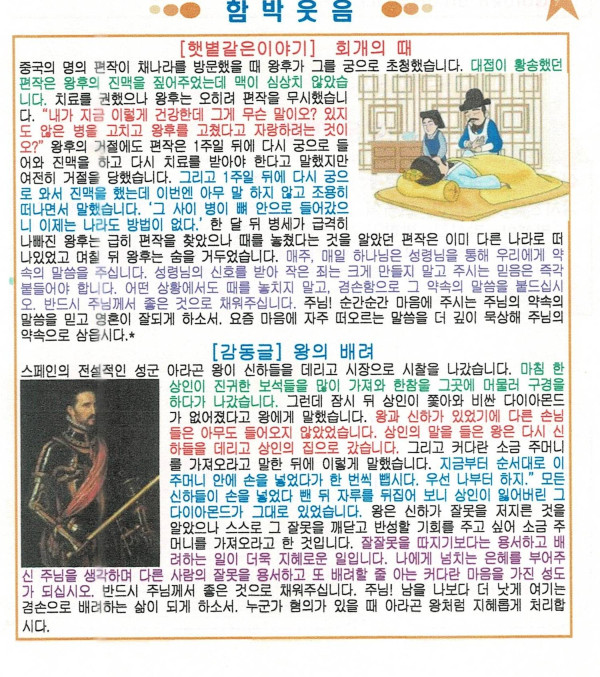 함박웃음
[햇볕같은이야기] 회개의 때
중국의 명의 편작이 채나라를 방문했을 때 왕후가 그를 궁으로 초청했습니다. 대접이 황송했던
편작은 왕후의 진맥을 짚어주었는데 맥이 심상치 않았습
니다. 치료를 권했으나 왕후는 오히려 편작을 무시했습니
다. “내가 지금 이렇게 건강한데 그게 무슨 말이오? 있지
도 않은 병을 고치고 왕후를 고쳤다고 자랑하려는 것이
오?” 왕후의 거절에도 편작은 1주일 뒤에 다시 궁으로 들
어와 진맥을 하고 다시 치료를 받아야 한다고 말했지만
여전히 거절을 당했습니다. 그리고 1주일 뒤에 다시 궁으
로 와서 진맥을 했는데 이번엔 아무 말 하지 않고 조용히
떠나면서 말했습니다. ‘그 사이 병이 뼈 안으로 들어갔으
니 이제는 나라도 방법이 없다.’ 한 달 뒤 병세가 급격히
나빠진 왕후는 급히 편작을 찾았으나 때를 놓쳤다는 것을 알았던 편작은 이미 다른 나라로 떠
나있었고 며칠 뒤 왕후는 숨을 거두었습니다. 매주, 매일 하나님은 성령님을 통해 우리에게 약
속의 말씀을 주십니다. 성령님의 신호를 받아 작은 죄는 크게 만들지 말고 주시는 믿음은 즉각
붙들어야 합니다. 어떤 상황에서도 때를 놓치지 말고, 겸손함으로 그 약속의 말씀을 붙드십시
오. 반드시 주님께서 좋은 것으로 채워주십니다. 주님! 순간순간 마음에 주시는 주님의 약속의
말씀을 믿고 영혼이 잘되게 하소서. 요즘 마음에 자주 떠오르는 말씀을 더 깊이 묵상해 주님의
약속으로 삼읍시다.*
[감동글] 왕의 배려
스페인의 전설적인 성군 아라곤 왕이 신하들을 데리고 시장으로 시찰을 나갔습니다. 마침 한
상인이 진귀한 보석들을 많이 가져와 한참을 그곳에 머물러 구경을
하다가 나갔습니다. 그런데 잠시 뒤 상인이 쫓아와 비싼 다이아몬드
가 없어졌다고 왕에게 말했습니다. 왕과 신하가 있었기에 다른 손님
들은 아무도 들어오지 않았었습니다. 상인의 말을 들은 왕은 다시 신
하들을 데리고 상인의 집으로 갔습니다. 그리고 커다란 소금 주머니
를 가져오라고 말한 뒤에 이렇게 말했습니다. 지금부터 순서대로 이
주머니 안에 손을 넣었다가 한 번씩 뺍시다. 우선 나부터 하지.” 모든
신하들이 손을 넣었다 뺀 뒤 자루를 뒤집어 보니 상인이 잃어버린 그
다이아몬드가 그대로 있었습니다. 왕은 신하가 잘못을 저지른 것을
알았으나 스스로 그 잘못을 깨닫고 반성할 기회를 주고 싶어 소금 주
머니를 가져오라고 한 것입니다. 잘잘못을 따지기보다는 용서하고 배
려하는 일이 더욱 지혜로운 일입니다. 나에게 넘치는 은혜를 부어주
신 주님을 생각하며 다른 사람의 잘못을 용서하고 또 배려할 줄 아는 커다란 마음을 가진 성도
가 되십시오. 반드시 주님께서 좋은 것으로 채워주십니다. 주님! 남을 나보다 더 낫게 여기는
겸손으로 배려하는 삶이 되게 하소서. 누군가 혐의가 있을 때 아라곤 왕처럼 지혜롭게 처리합
시다.